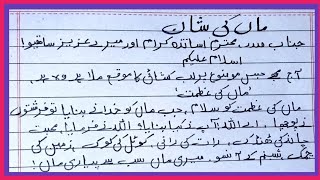 ماں کی شان
جناب صدر، محترم اساتذہ کرام اور میرے عزیز ساتھیوا
اسلام علیکم
آج مجھے جس موضوع پر لب کشائی کا موقع ملا ہے وہ ہے۔
"ماں کی عظمت"
ماں کی عظمت کو سلام، جب ماں کو خدا نے بنایا تو فرشتوں
نے پوچھا، اے اللہ! آپ نے کیا بنایا، اللہ نے فرمایا محبت
چاند کی ٹھنڈک، رات کی رانی، کوئل کی کوک، زمین کی
چمک، شبنم کے آنسو، میری ماں سب سے پیاری ماں!